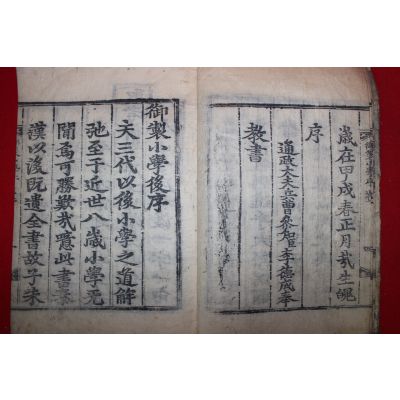 歲在甲戌春正月哉生魄
序
通政大夫兵曹參知李德成奉
教書
御製小學後序
夫三代以後小學之道解
弛至于近世八歲小學无
聞焉可勝歎哉噫此書秦
漢以後旣遺全書故子朱